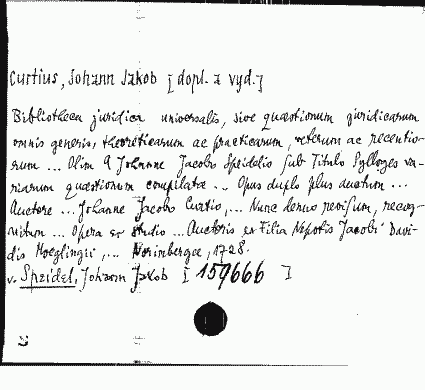 Curtius, Johann Jakob [dopl. a vyd.]
Bibliotheca juridica universalis, sive quaestionum juridicarum
omnis generis, theoreticarum ac practicarum, veterum ac recentio-
rum ... Olim a Johanne Jacobo Speidelio sub Titulo Sylloges va-
riarum quaestionum compilata ... Opus duplo plus auctum ...
Auctore ... Johanne Jacobo Curtio, ... Nunc denuo revisum, recog-
nitum ... Opera et studio ... Auctoris ex Filia Nepotis Jacobi Davi-
dis Moeglingii, ... Norimbergae, 1728.
v. Speidel, Johann Jakob [159666]